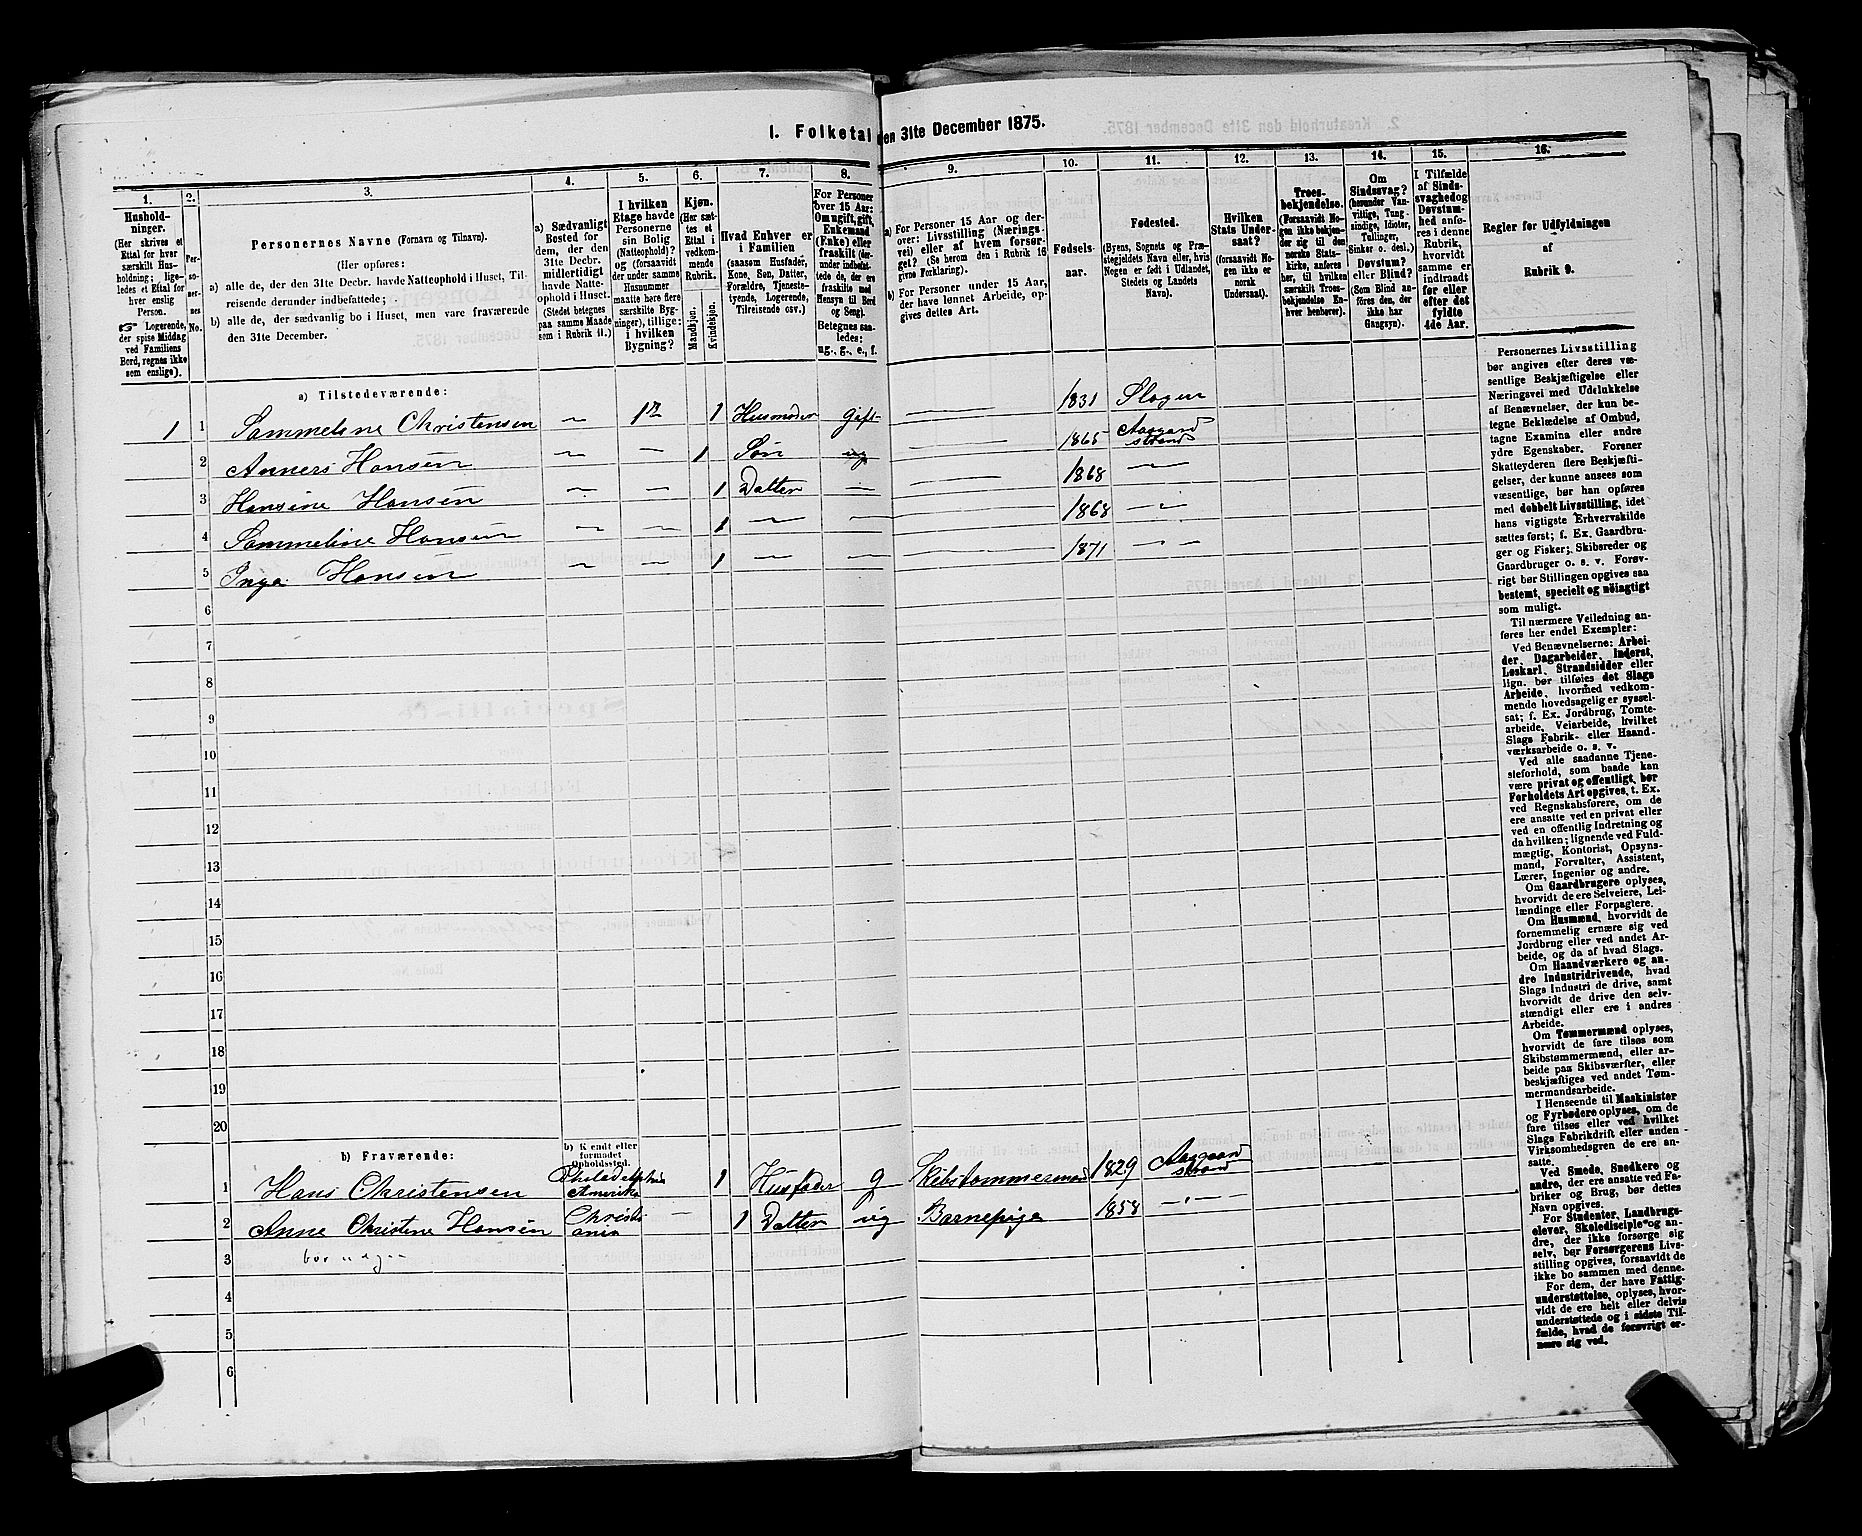 1. Folketal den 31te December 1875.
1. 2. 3. 4. 5. 6. 7. 8. 9. 10. 11. 12. 13. 14. 15. 16.
Hushold-
ninger.
(Her skrives et
Ettal for hver
særskilt Hus-
holdning; lige-
ledes et Ettal for
hver enslig
Person.
☞ Logerende,
der spise Middag
ved Familiens
Bord, regnes ikke
som enslige).
Per-
so-
ner-
nes
No.
Personernes Navne (Fornavn og Tilnavn).
(Her opføres:
a) alle de, der den 31te Decbr. havde Natteophold i Huset, Til-
reisende derunder indbefattede;
b) alle de, der sædvanlig bo i Huset, men vare fraværende
den 31te December.
a) Sædvanligt
Bosted for
dem, der den
31te Decbr.
midlertidigt
havde Natte-
ophold i Huset.
(Stedet betegnes
paa samme Maade
som i Rubrik 11.)
I hvilken
Etage havde
Personerne
sin Bolig
(Natteophold)?
og (forsaavidt
der under samme
Husnummer
maatte høre flere
særskilte Byg-
ninger), tillige:
i hvilken
Bygning?
Kjøn.
(Her sæt-
tes et
Ettal i
vedkom-
mende
Rubrik.
Mandkjøn.
Kvindekjøn.
Hvad Enhver er
i Familien
(saasom Husfader,
Kone, Søn, Datter,
Forældre, Tjeneste-
tyende, Logerende,
Tilreisende osv.)
For Personer
over 15 Aar:
Om ugift, gift,
Enkemand
(Enke) eller
fraskilt (der-
under indbefat-
tede de, der ere
fraskilte med
Hensyn til Bord
og Seng).
Betegnes saa-
ledes:
ug., g., e., f.
a) For Personer 15 Aar og der-
over: Livsstilling (Nærings-
vei) eller af hvem forsør-
get? (Se herom den i Rubrik 16
givne Forklaring).
b) For Personer under 15 Aar,
der have lønnet Arbeide, op-
gives dettes Art.
Fødsels-
aar.
Fødested.
(Byens, Sognets og Præ-
stegjeldets Navn eller, hvis
Nogen er født i Udlandet,
Stedets og Landets
Navn).
Hvilken
Stats Under-
saat?
(forsaavidt No-
gen ikke er
norsk
Undersaat).
Troes-
bekjendelse.
(Forsaavidt No-
gen ikke bekjen-
der sig til den
norske Stats-
kirke, anføres
her, til hvilken
særskilt Troes-
bekjendelse En-
hver henhører).
Om
Sindssvag?
(herunder Van-
vittige, Tung-
sindige, Idioter,
Tullinger,
Sinker o. desl.)
Døvstum?
eller Blind?
(Som Blind an-
føres den, der
ikke har
Gangsyn).
I Tilfælde
af Sinds-
svaghed og
Døvstum-
hed anfø-
res i denne
Rubrik,
hvorvidt
samme er
indtraadt
før eller
efter det
fyldte
4de Aar.
Regler for Udfyldningen
af
Rubrik 9.
a) Tilstedeværende:
1 1 Sammeline Christensen — 1ste 1 Husmoder gift — 1831 Slagen
2 Anners Hansen — — 1 Søn ug — 1865 Aasgaard
strand
3 Hansine Hansen — — 1 Datter — — 1868 — " —
4 Sammeline Hansen — — 1 — — 1868 — " —
5 Inga Hansen — — 1 — — 1871 — " —
6
7
8
9
10
11
12
13
14
15
16
17
18
19
20
b) Fraværende:
b) Kjendt eller
formodet
Opholdssted.
1 Hans Christensen Pheladelphia
Amerika 1 Husfader g Skibstommermand 1829 Aasgaard
strand
2 Anne Christine Hansen Christi
ania — 1 Datter ug Barnepige 1858 — " —
3
4
5
6
Personernes Livsstilling
bør angives efter deres væ-
sentlige Beskjæftigelse eller
Næringsvei med Udelukkelse
af Benævnelser, der kun be-
tegne Beklædelse af Ombud,
tagne Examina eller andre
ydre Egenskaber. Forener
Skatteyderen flere Beskjæfti-
gelser, der kunne ansees som
væsentlige, bør han opføres
med dobbelt Livsstilling, idet
hans vigtigste Erhvervskilde
sættes først; f. Ex. Gaardbru-
ger og Fisker; Skibsreder og
Gaardbruger o. s. v. Forøv-
rigt bør Stillingen opgives saa
bestemt, specielt og nöiagtigt
som muligt.
Til nærmere Veiledning an-
føres her endel Exempler:
Ved Benævnelserne: Arbei-
der, Dagarbeider, Inderst,
Løskarl, Strandsidder eller
lign. bør tilføies det Slags
Arbeide, hvormed vedkom-
mende hovedsagelig er syssel-
sat; f. Ex. Jordbrug, Tomte-
arbeide, Veiarbeide, hvilket
Slags Fabrik- eller Haand-
værksarbeide o. s. v.
Ved alle saadanne Tjene-
steforhold, som baade kan
være privat og offentligt, bør
Forholdets Art opgives, t. Ex.
ved Regnskabsførere, om de
ere ansatte ved en privat eller
ved en offentlig Indretning og
da hvilken; lignende ved Fuld-
mægtig, Kontorist, Opsyns-
mand, Forvalter, Assistent,
Lærer, Ingeniør og andre.
Om Gaardbrugere oplyses,
hvorvidt de ere Selveiere, Lei-
lændinge eller Forpagtere.
Om Husmænd, hvorvidt de
fornemmelig ernære sig ved
Jordbrug eller ved andet Ar-
beide, og da af hvad Slags.
Om Haandværkere og an-
dre Industridrivende, hvad
Slags Industri de drive, samt
hvorvidt de drive den selv-
stændigt eller ere i andres
Arbeide.
Om Tømmermænd oplyses,
hvorvidt de fare tilsøs som
Skibstømmermænd, eller ar-
beide paa Skibsværfter, eller
beskjæftiges ved andet Tøm-
mermandsarbeide.
I Henseende til Maskinister
og Fyrbødere oplyses, om de
fare tilsøs eller ved hvilket
Slags Fabrikdrift eller anden
Virksomhedsgren de ere an-
satte.
Ved Smede, Snedkere og
andre, der ere ansatte ved Fa-
briker og Brug, bør dettes
Navn opgives.
For Studenter, Landbrugs-
elever, Skoledisciple og an-
dre, der ikke forsørge sig
selv, bør Forsørgerens Livs-
stilling opgives, forsaavidt de
ikke bo sammen med denne.
For dem, der have Fattig-
understøttelse, oplyses, hvor-
vidt de ere helt eller delvis
understøttede og i sidste Til-
fælde, hvad de forøvrigt er-
nære sig ved.